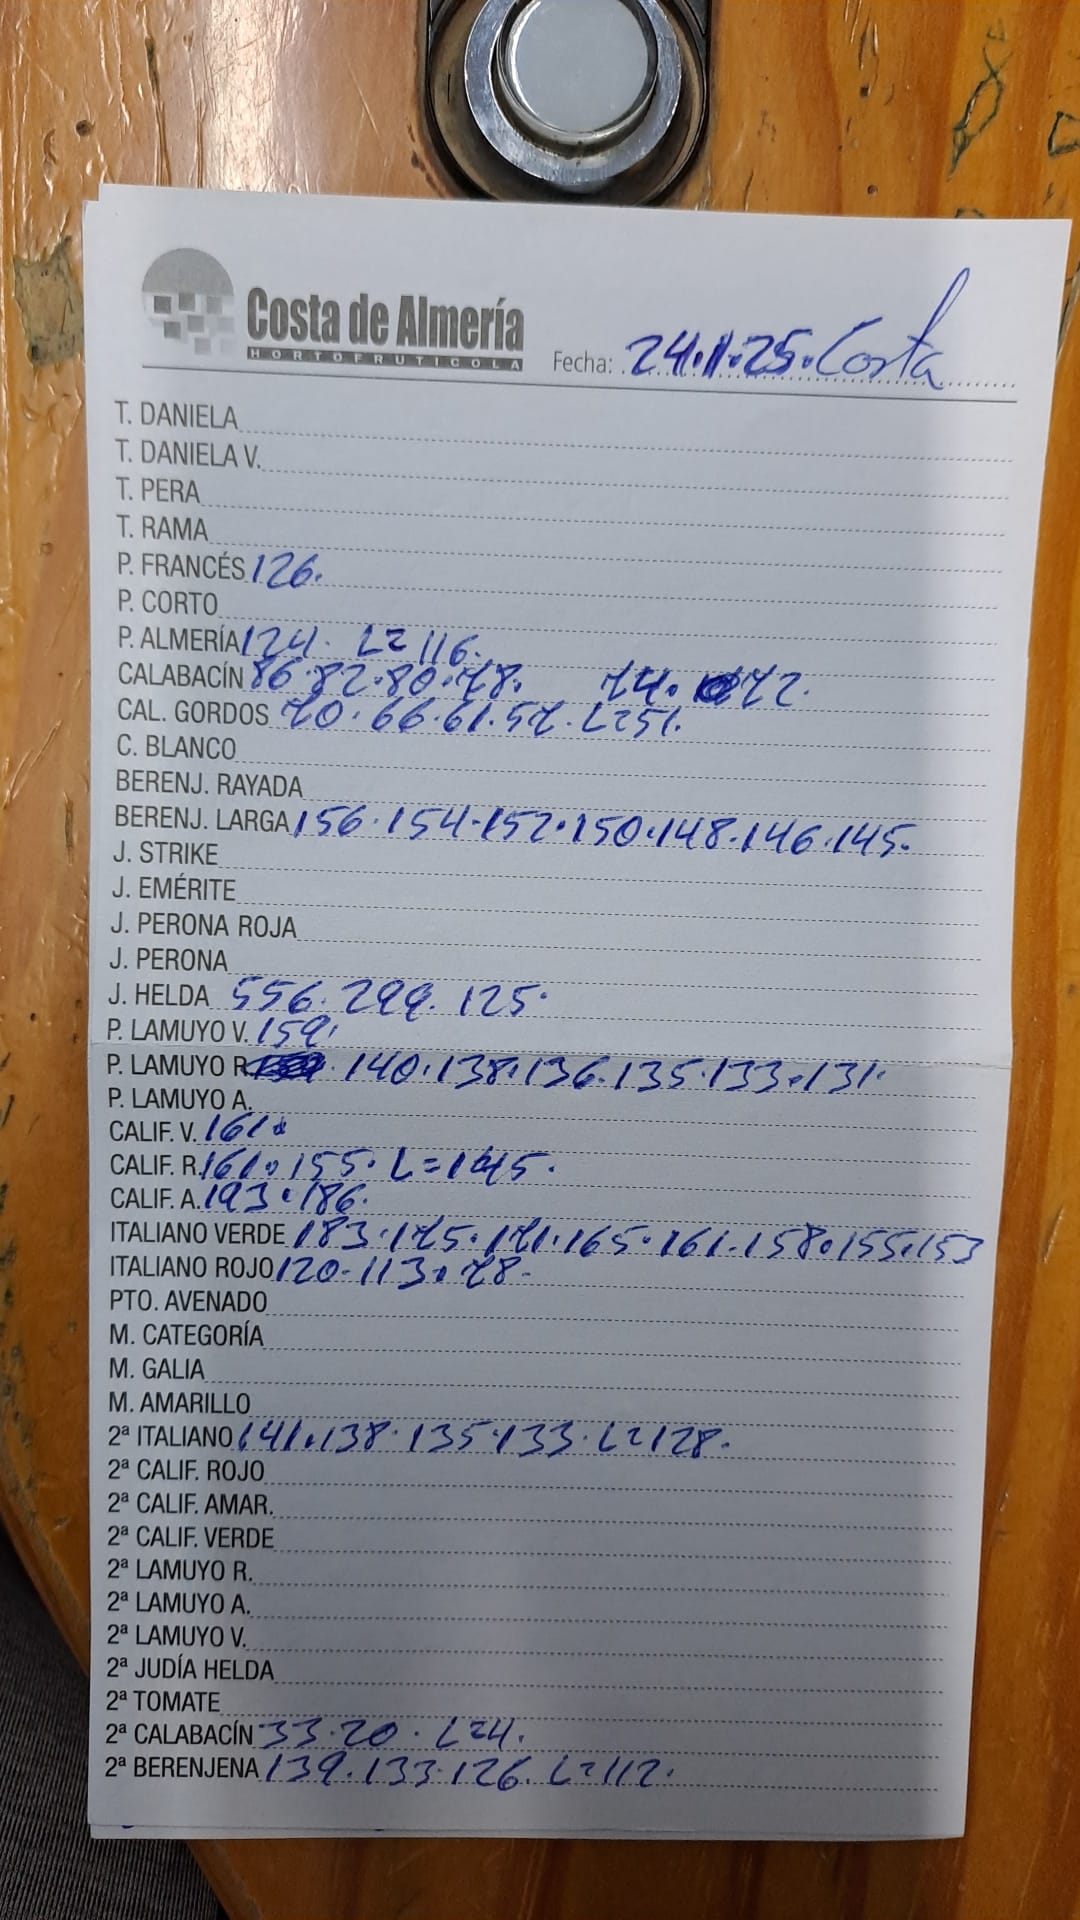 Costa de Almería
HORTOFRUTICOLA
Fecha: 24.1.25. Costa
T. DANIELA
T. DANIELA V.
T. PERA
T. RAMA
P. FRANCÉS 126.
P. CORTO
P. ALMERÍA 124. L=116.
CALABACÍN 86.82.80.78. 74. 72.
CAL. GORDOS 70.66.61.57. L=51.
C. BLANCO
BERENJ. RAYADA
BERENJ. LARGA 156.154.152.150.148.146.145.
J. STRIKE
J. EMÉRITE
J. PERONA ROJA
J. PERONA
J. HELDA 556.299.125.
P. LAMUYO V. 159.
P. LAMUYO R. 140.138.136.135.133.131.
P. LAMUYO A.
CALIF. V. 161.
CALIF. R. 161.155. L=145.
CALIF. A. 193.186.
ITALIANO VERDE 183.175.171.165.161.158.155.153
ITALIANO ROJO 120.113.78.
PTO. AVENADO
M. CATEGORÍA
M. GALIA
M. AMARILLO
2ª ITALIANO 141.138.135.133. L=128.
2ª CALIF. ROJO
2ª CALIF. AMAR.
2ª CALIF. VERDE
2ª LAMUYO R.
2ª LAMUYO A.
2ª LAMUYO V.
2ª JUDÍA HELDA
2ª TOMATE
2ª CALABACÍN 33.20. L=4.
2ª BERENJENA 139.133.126. L=112.